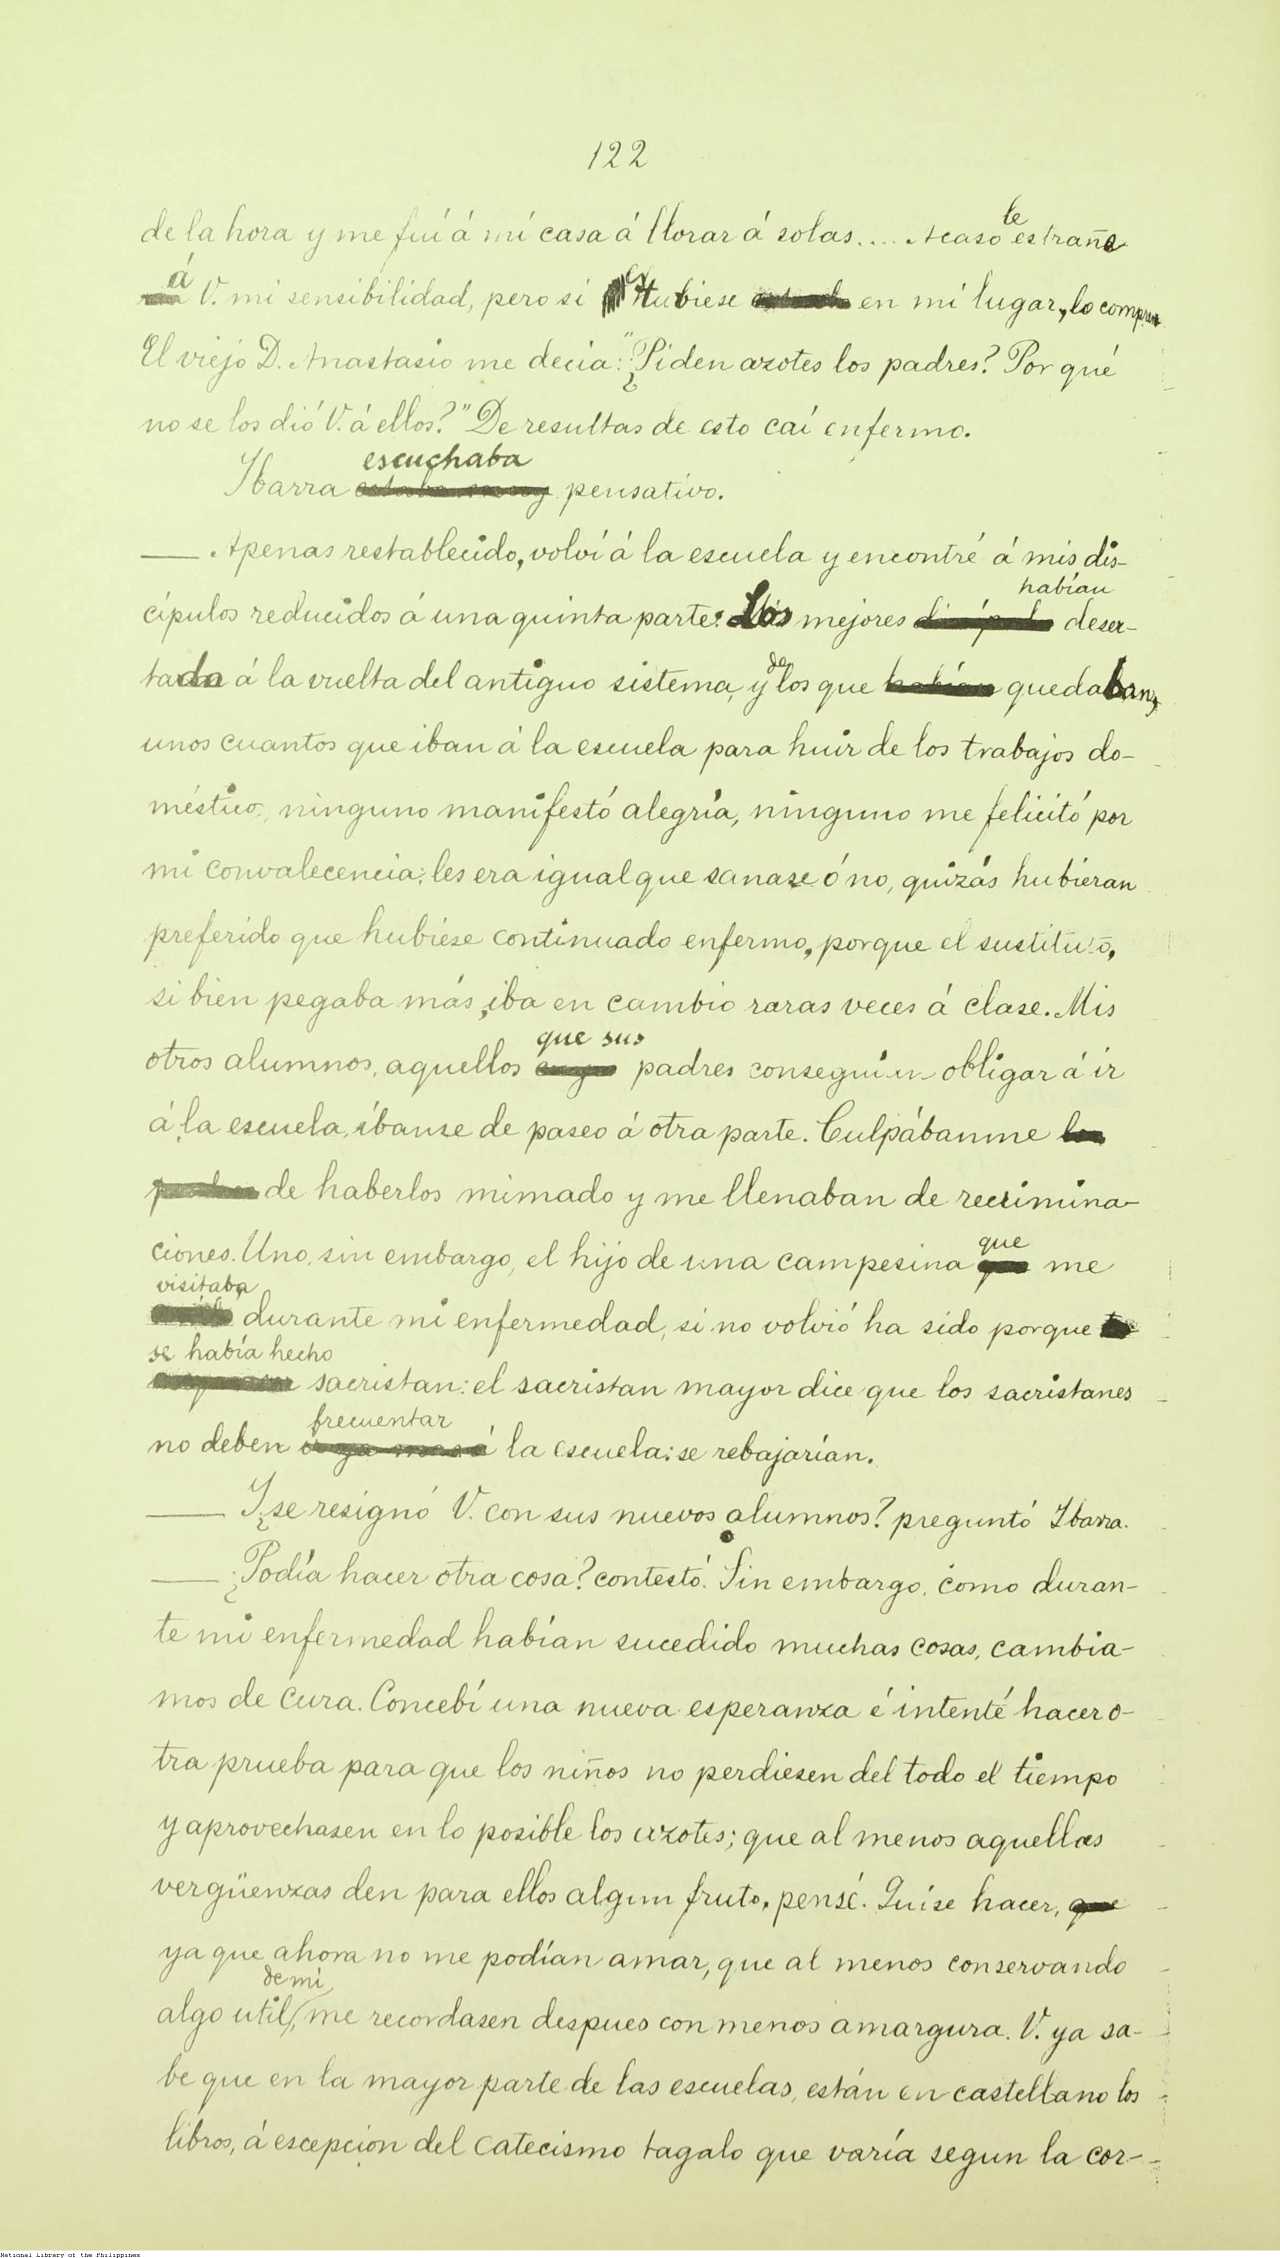 122
de la hora y me fuí á mi casa á llorar á solas.... Acaso te estrañe
á V. mi sensibilidad, pero si estubiese en mi lugar, lo compren
El viejo D. Anastasio me decia: "¿Piden azotes los padres? Por qué
no se los dió V. á ellos?" De resultas de esto caí enfermo.
Ibarra escuchaba pensativo.
— Apenas restablecido, volví á la escuela y encontré á mis dis-
cípulos reducidos á una quinta parte: Los mejores habían deser-
tado á la vuelta del antiguo sistema, y de los que quedaban,
unos cuantos que iban á la escuela para huir de los trabajos do-
méstico, ninguno manifestó alegría, ninguno me felicitó por
mi convalecencia; les era igual que sanase ó no, quizás hubieran
preferido que hubiese continuado enfermo, porque el sustituto,
si bien pegaba más, iba en cambio raras veces á clase. Mis
otros alumnos, aquellos que sus padres conseguian obligar á ir
á la escuela, íbanse de paseo á otra parte. Culpábanme los
padres de haberlos mimado y me llenaban de recrimina-
ciones. Uno, sin embargo, el hijo de una campesina que me
visitaba durante mi enfermedad, si no volvió ha sido porque
se había hecho sacristan: el sacristan mayor dice que los sacristanes
no deben frecuentar la escuela: se rebajarían.
— ¿Y se resignó V. con sus nuevos alumnos? preguntó Ibarra.
— ¿Podía hacer otra cosa? contestó. Sin embargo, como duran-
te mi enfermedad habían sucedido muchas cosas, cambia-
mos de cura. Concebí una nueva esperanza é intenté hacer o-
tra prueba para que los niños no perdiesen del todo el tiempo
y aprovechasen en lo posible los azotes; que al menos aquellas
vergüenzas den para ellos algun fruto, pensé. Quíse hacer, que
ya que ahora no me podían amar, que al menos conservando
algo util de mi, me recordasen despues con menos amargura. V. ya sa-
be que en la mayor parte de las escuelas, están en castellano los
libros, á escepcion del Catecismo tagalo que varía segun la cor-
National Library of the Philippines